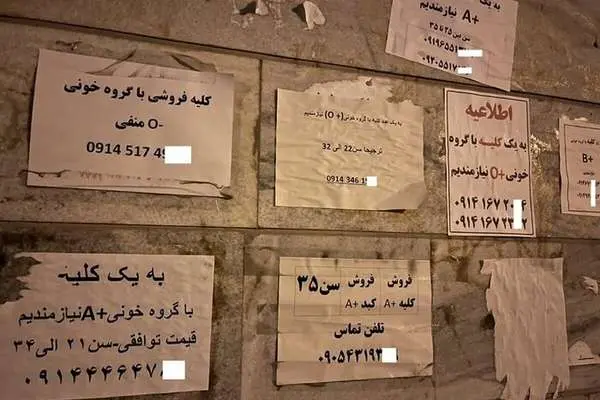 به یک کلیه
A+ نیازمندیم
سن بین ۲۵ تا ۳۵
۰۹۱۹۶۵۵۱
۰۹۲۰۵۵۱۷
کلیه فروشی با گروه خونی
O- منفی
0914 517 4
به یک عدد کلیه با گروه خونی(O +) نیازمندیم
ترجیحا سن22 الی 32
0914 346 1
اطلاعیه
به یک کلیــه با گروه
خونی O+ نیازمندیم
۰۹۱۴ ۱۶۷ ۲
۰۹۱۴ ۱۶۷ ۲
B+
به یک کلیــه
با گروه خونی A+ نیازمندیم
قیمت توافقی-سن ۲۱ الی ۳۴
۰۹۱۴۴۴۶۴۷
فروش فروش سن ۳۵
کلیه A+ کبد A+
تلفن تماس
۰۹۰۵۴۳۱۹۳